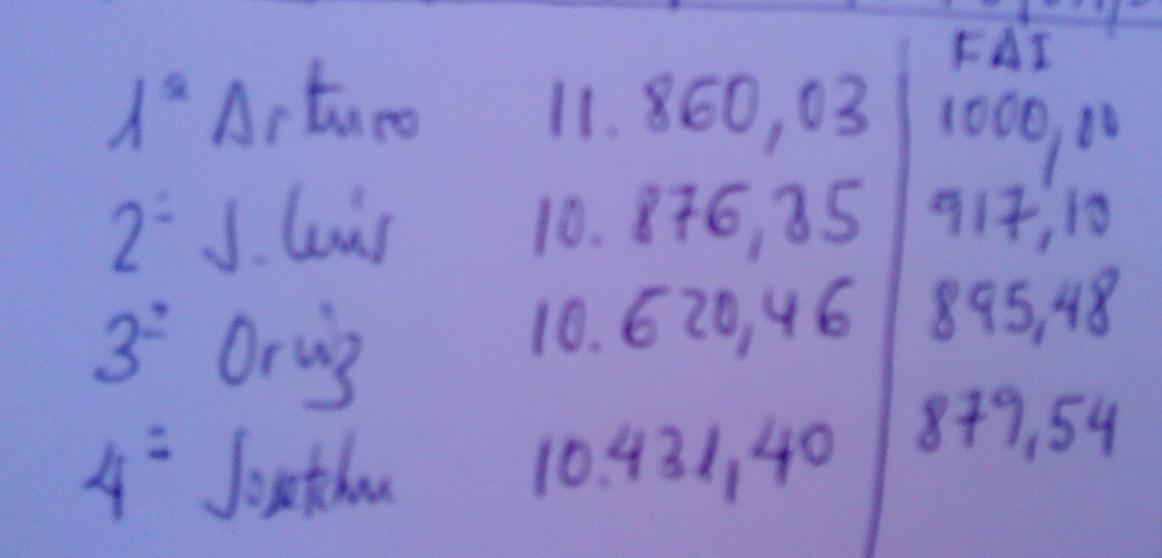 FAI
1º Arturo 11.860,03 1000,00
2º J. Luis 10.876,85 917,10
3º Oruiz 10.620,46 895,48
4º 10.431,40 879,54